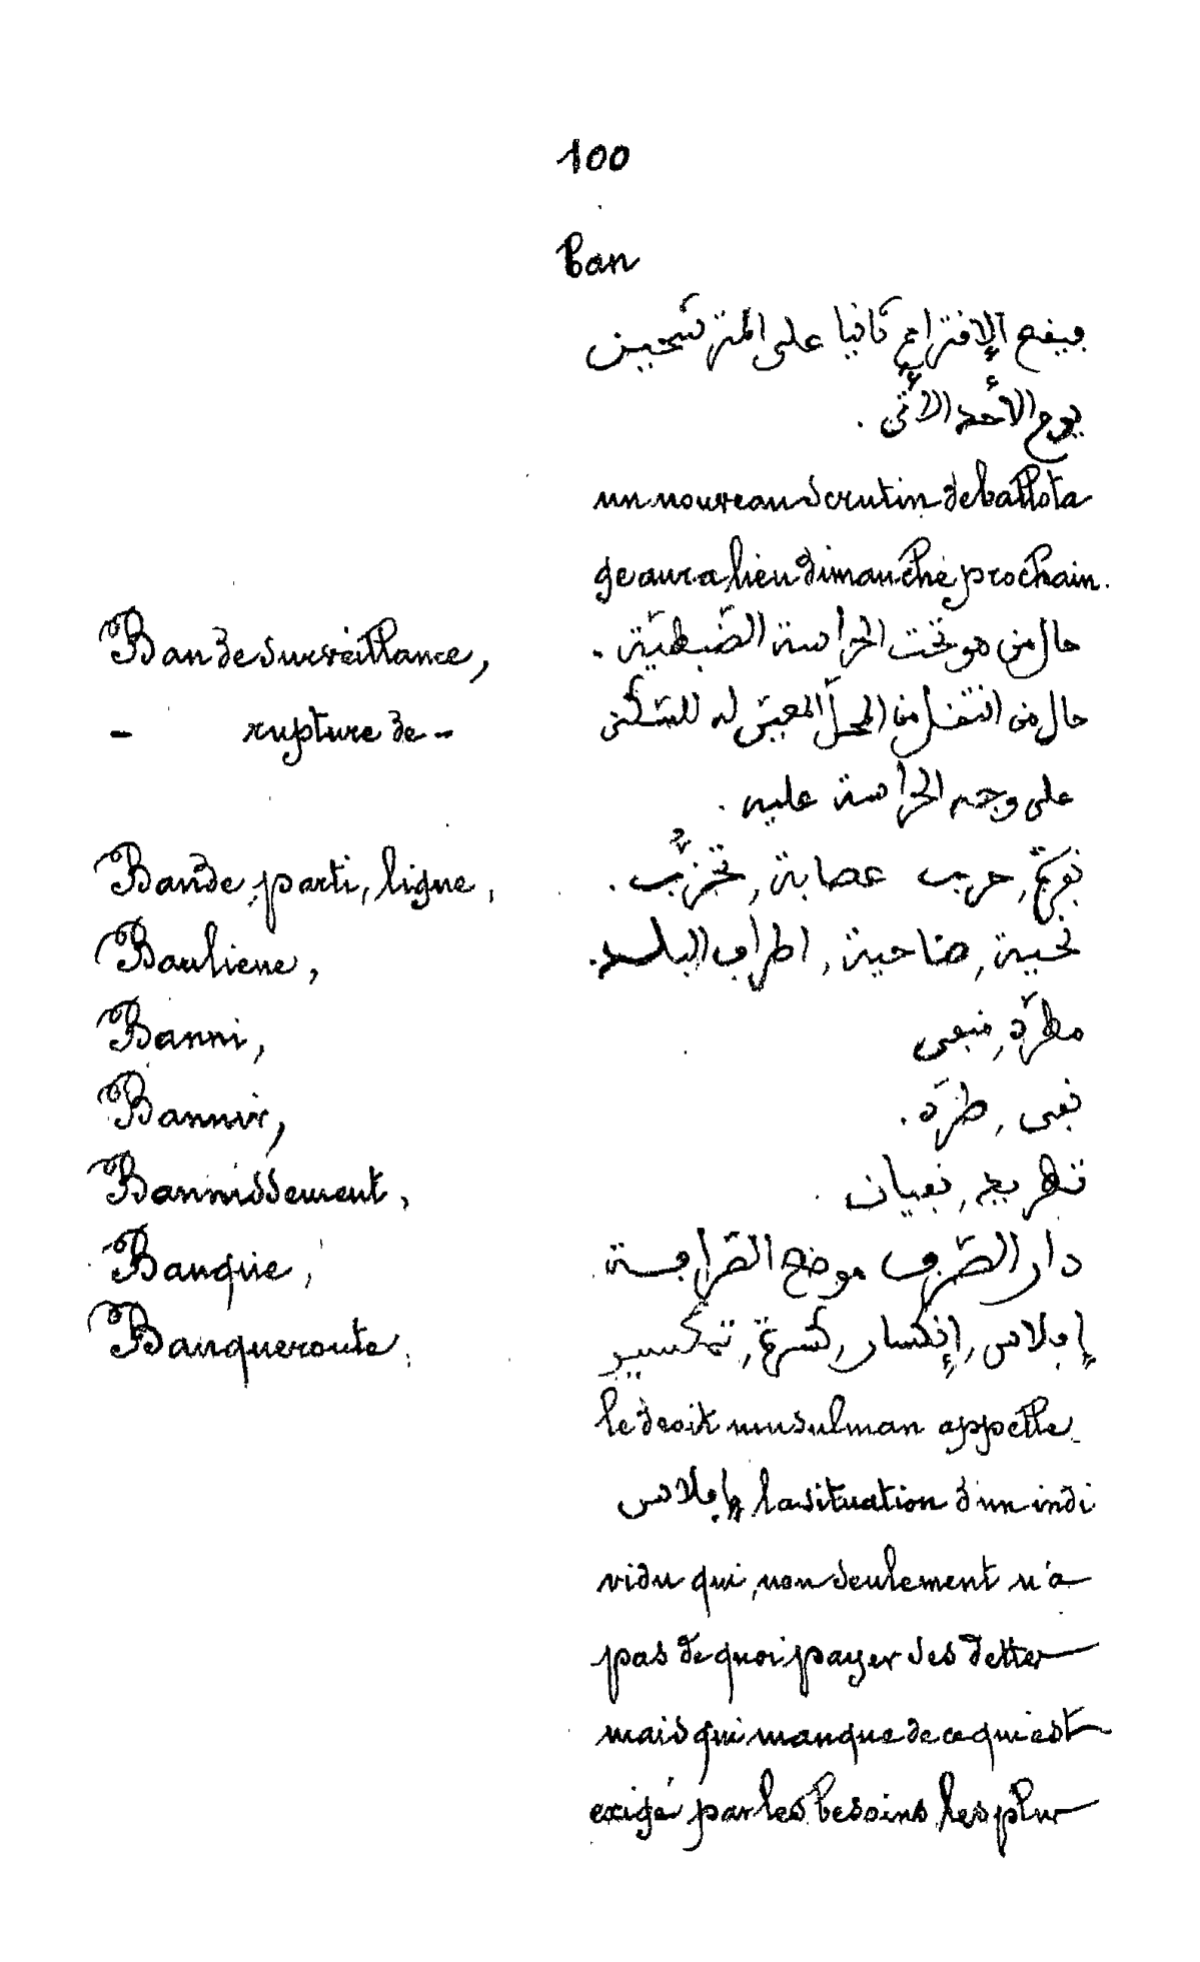 100
Ban
فيقع الإقتراع ثانيا على المترشحين
يوم الأحد الأتي .
un nouveau scrutin de ballota
ge aura lieu dimanche prochain.
Ban de surveillance, حال من هو تحت الحراسة الضّبطيّة .
- rupture de - حال من انتقل من المحلّ المعيّن له للسّكنى
على وجه الحراسة عليه .
Bande, parti, ligue, حزب عصابة, تحزّب .
Banlieue, ضاحية, اطراف البلد.
Banni, مطرّد, منفى
Bannir, نفى, طرّد .
Bannissement, تطريد, نفيان .
Banque, دار الصّرف موضع الصّرافة
Banqueroute, إفلاس, إنكسار, كسرة, تكسير
le droit musulman appelle
إفلاس la situation d'un indi
vidu qui, non seulement n'a
pas de quoi payer ses dettes
mais qui manque de ce qui est
exigé par les besoins les plus